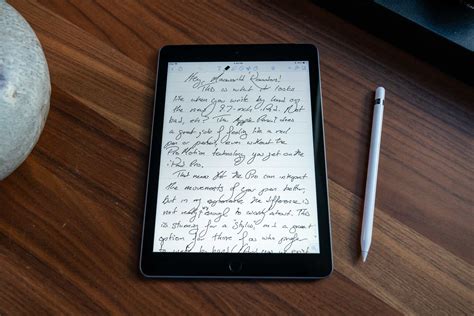 Hey, Macworld Readers!
This is what it looks
like when you write by hand on
the new 9.7-inch iPad. Not
bad, eh? The Apple Pencil does
a great job of feeling like a real
pen or pencil, even without the
ProMotion technology you get on the
iPad Pro.
That means the Pro can
the movements of your pen better,
but in my experience the difference is
not really enough to worry about. This
is stunning for a "stylus," and a great
option for those of us who prefer
to write by hand!